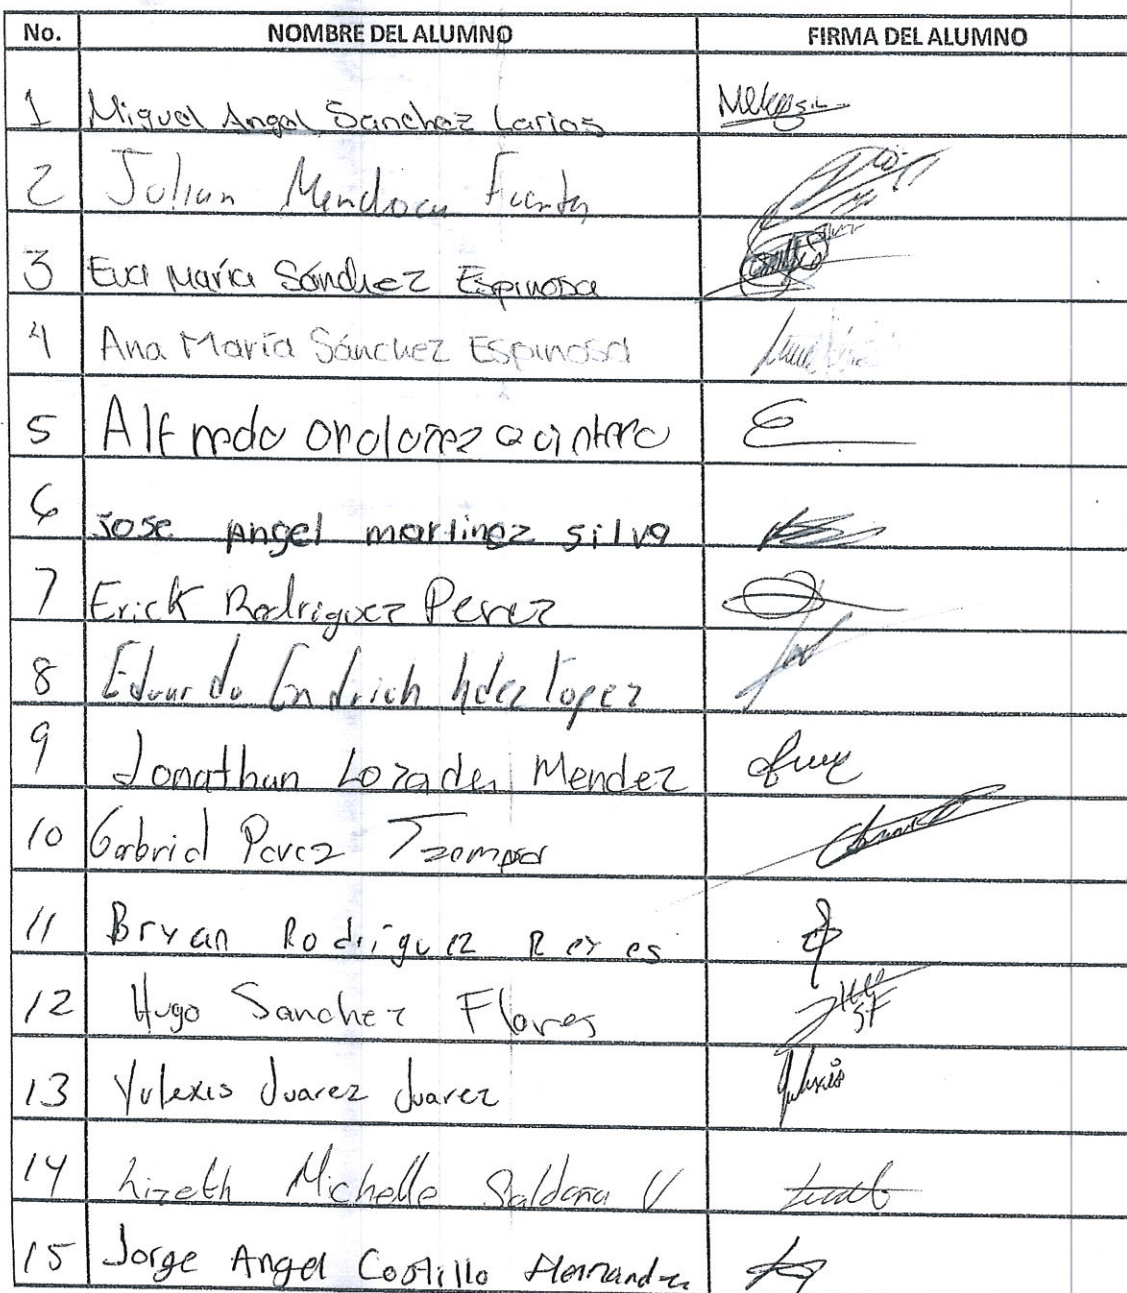 No. NOMBRE DEL ALUMNO FIRMA DEL ALUMNO
1 Miguel Angel Sanchez Larios
2 Julian Mendoza Fuentes
3 Eva María Sánchez Espinosa
4 Ana María Sánchez Espinosa
5 Alfredo ordoñez quintero
6 jose angel martinez silva
7 Erick Rodriguez Perez
8 Eduardo Endrich hdez lopez
9 Jonathan Lozada Mendez
10 Gabriel Perez Tzompa
11 Bryan Rodriguez Reyes
12 Hugo Sanchez Flores
13 Yulexis Juarez Juarez Yulexis
14 Lizeth Michelle Saldaña V
15 Jorge Angel Castillo Hernandez